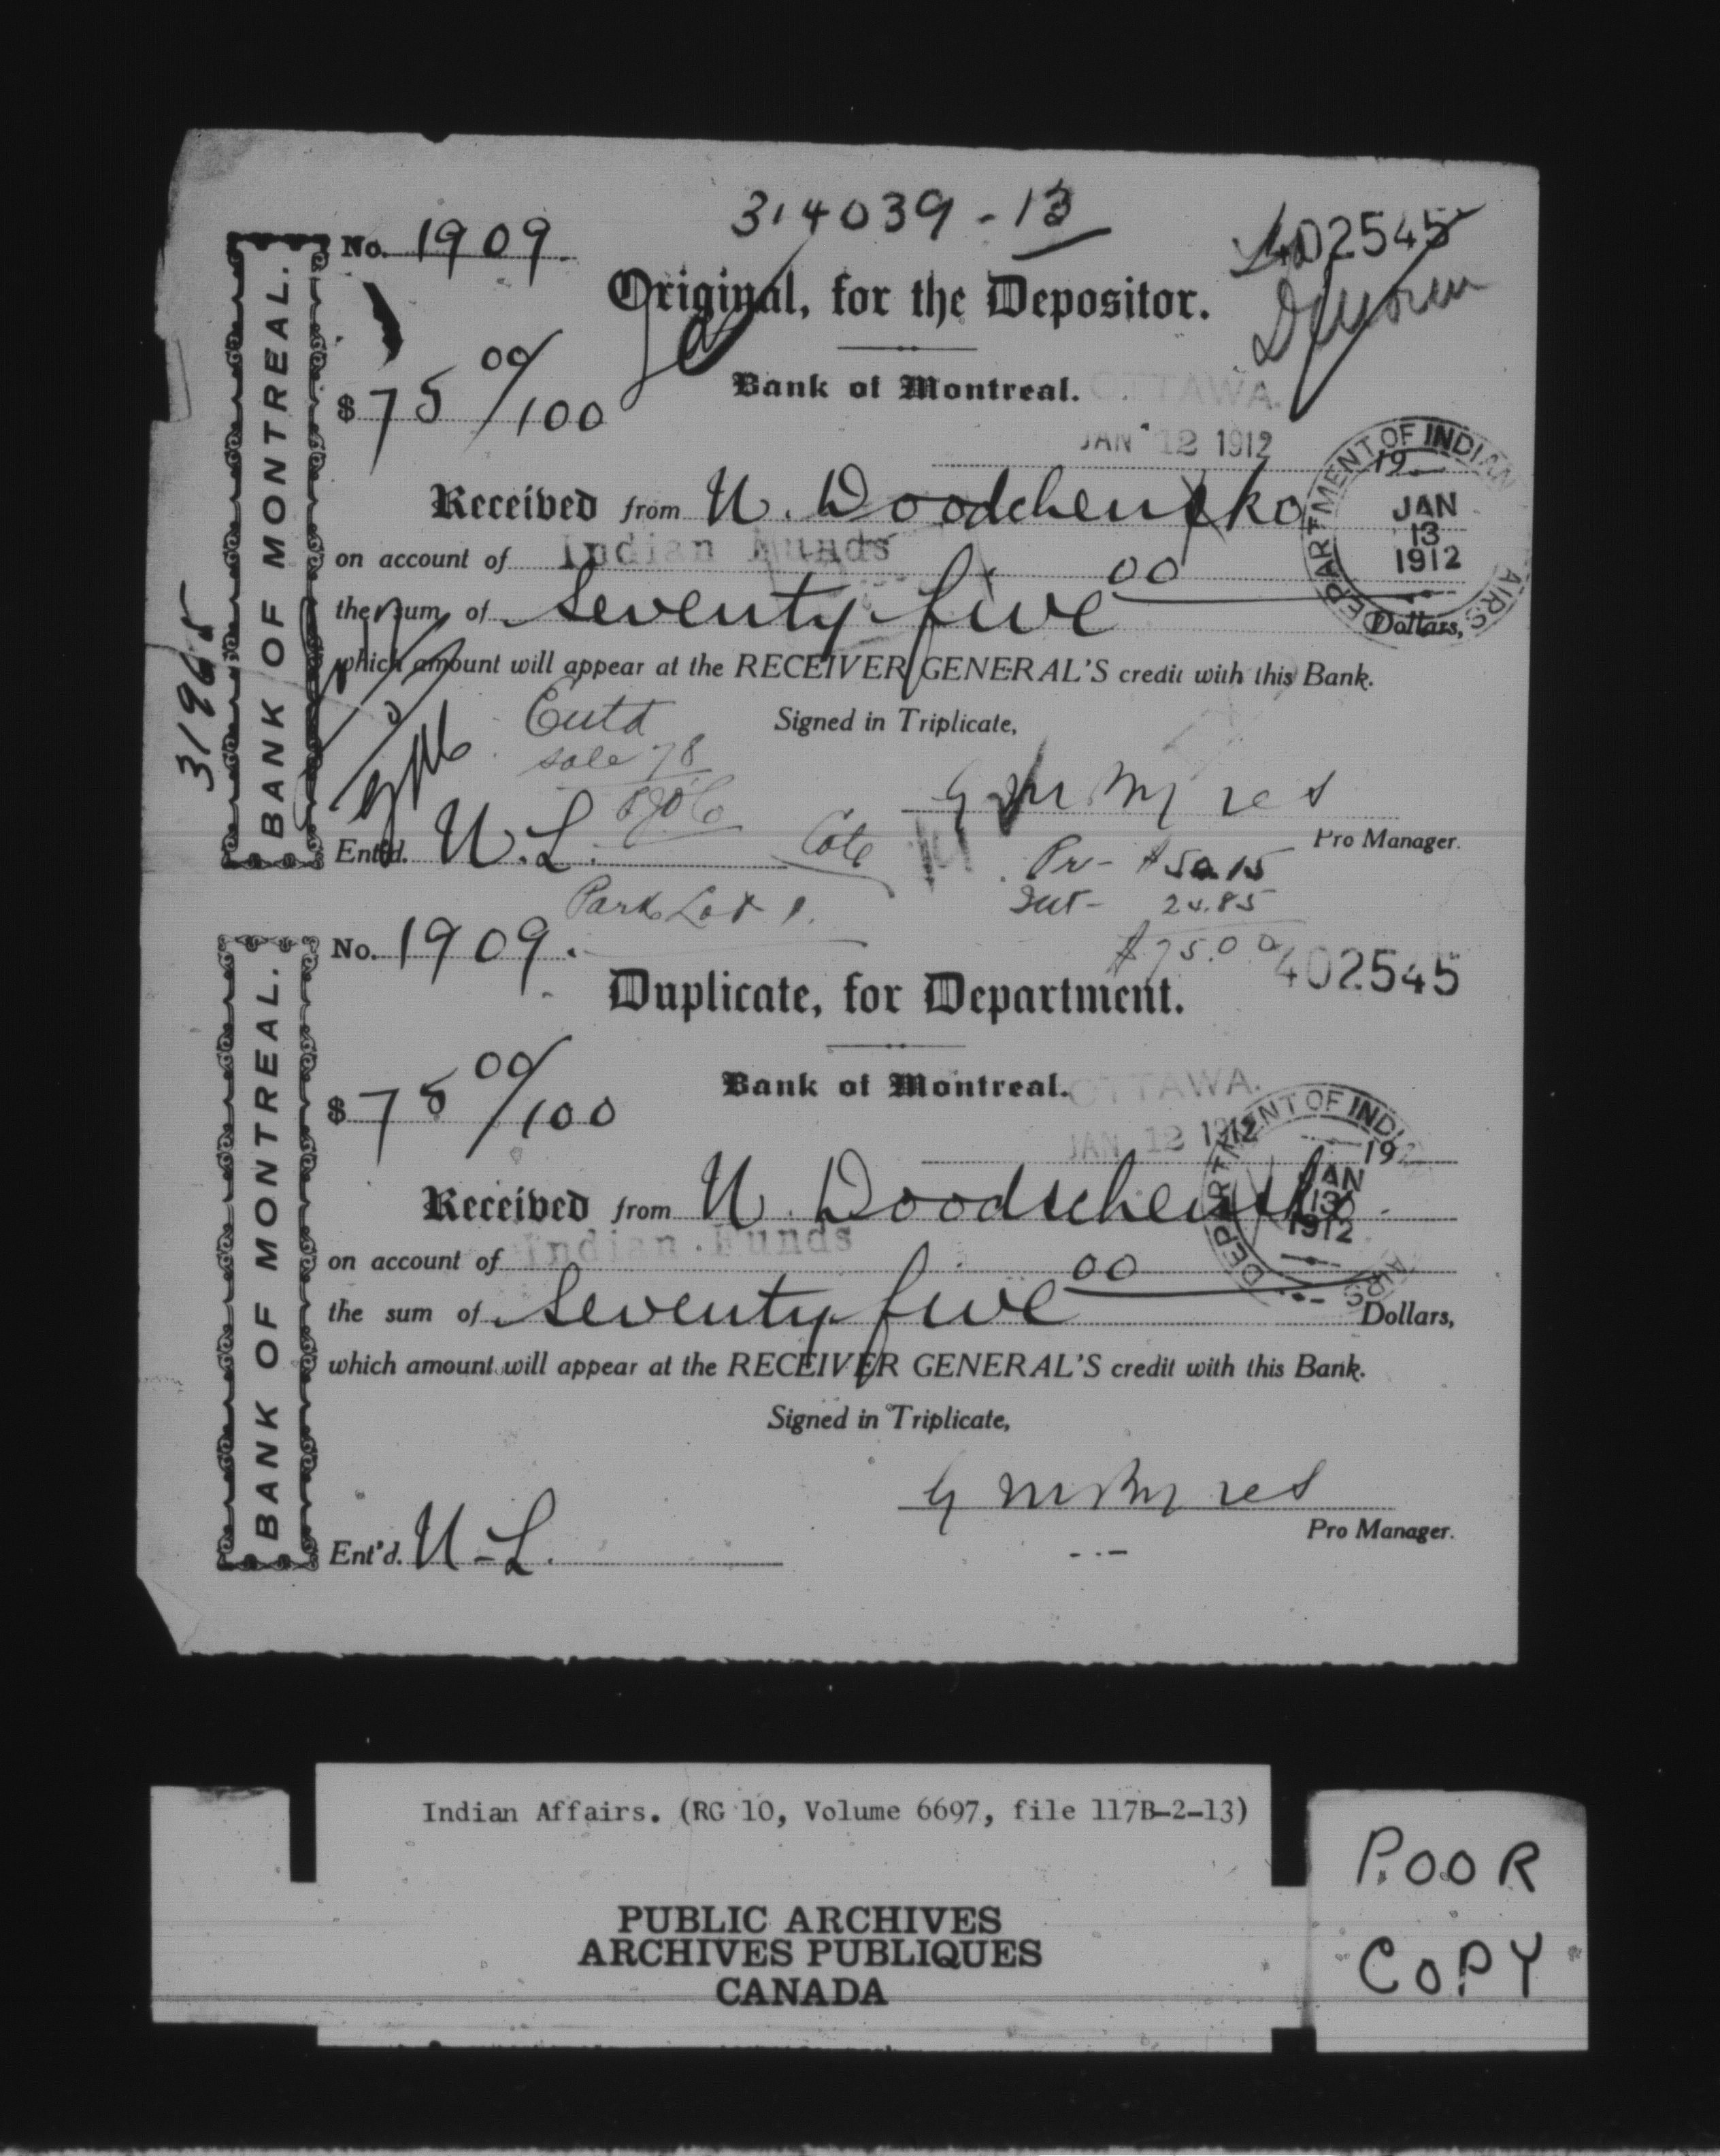 314039-13
402545
No. 1909
Original, for the Depositor.
BANK OF MONTREAL.
$75 00/100
Bank of Montreal.
OTTAWA.
JAN 12 1912
19
DEPARTMENT OF INDIAN AFFAIRS
JAN
13
1912
Received from N. Doodchenko
on account of Indian Funds
the sum of Seventy five 00 Dollars,
which amount will appear at the RECEIVER GENERAL'S credit with this Bank.
31965
Signed in Triplicate,
Entd
sale 78
Pro Manager.
Ent'd. N.L.
Cote
Pr- $50.15
Int- 24.85
$75.00
Park Lot 1.
No. 1909.
402545
Duplicate, for Department.
BANK OF MONTREAL.
$75 00/100
Bank of Montreal.
OTTAWA.
JAN 12 1912
19
DEPARTMENT OF INDIAN AFFAIRS
JAN
13
1912
Received from N.
on account of Indian Funds
the sum of Seventy five 00 Dollars,
which amount will appear at the RECEIVER GENERAL'S credit with this Bank.
Signed in Triplicate,
Pro Manager.
Ent'd. N-L.
Indian Affairs. (RG 10, Volume 6697, file 117B-2-13)
PUBLIC ARCHIVES
ARCHIVES PUBLIQUES
CANADA
POOR
COPY